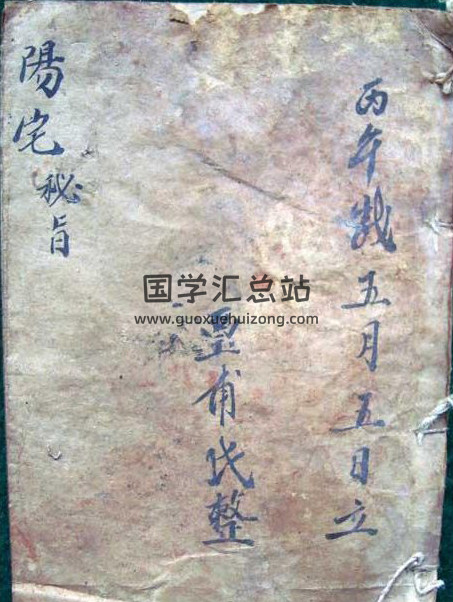 丙午歲五月五日立
甫氏整
陽宅秘旨
国学汇总站
www.guoxuehuizong.com